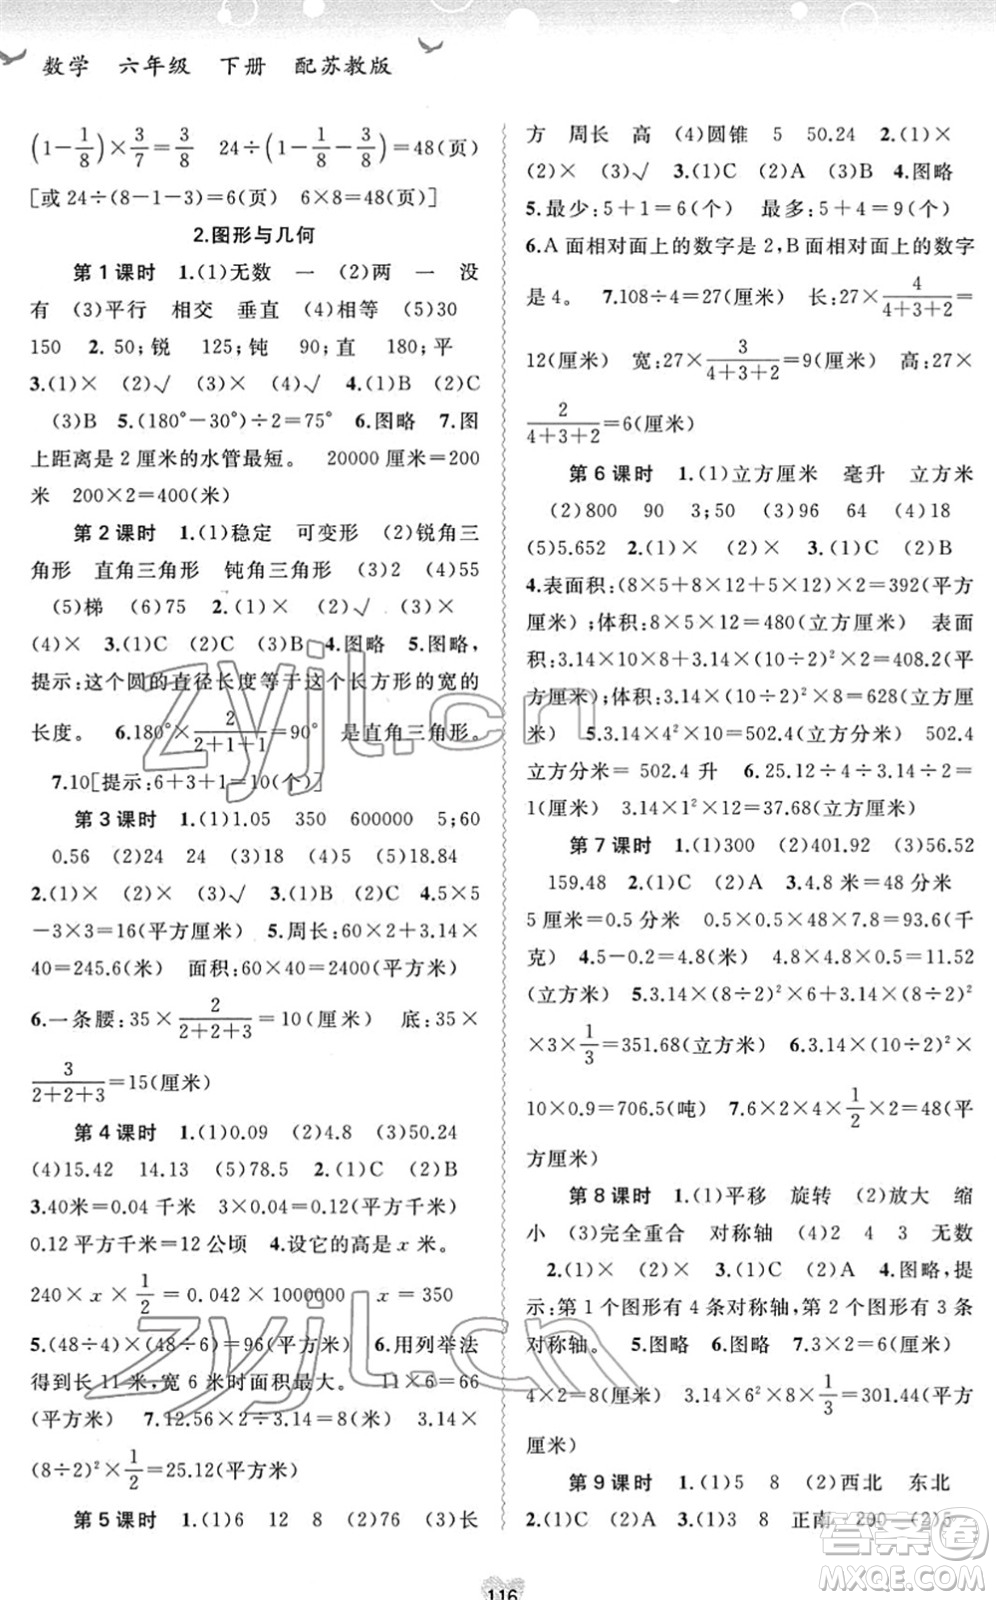 数学 六年级 下册 配苏教版
(1-1/8)×3/7=3/8 24÷(1-1/8-3/8)=48(页)
[或 24÷(8-1-3)=6(页) 6×8=48(页)]
2.图形与几何
第1课时 1.(1)无数 一 (2)两 一 没
有 (3)平行 相交 垂直 (4)相等 (5)30
150 2. 50;锐 125;钝 90;直 180;平
3.(1)× (2)√ (3)× (4)√ 4.(1)B (2)C
(3)B 5.(180°-30°)÷2=75° 6.图略 7.图
上距离是 2 厘米的水管最短。 20000 厘米=200
米 200×2=400(米)
第2课时 1.(1)稳定 可变形 (2)锐角三
角形 直角三角形 钝角三角形 (3)2 (4)55
(5)梯 (6)75 2.(1)× (2)√ (3)×
(4)× 3.(1)C (2)C (3)B 4.图略 5.图略,
提示:这个圆的直径长度等于这个长方形的宽的
长度。 6.180°×2/(2+1+1)=90° 是直角三角形。
7.10[提示:6+3+1=10(个)]
第3课时 1.(1)1.05 350 600000 5;60
0.56 (2)24 24 (3)18 (4)5 (5)18.84
2.(1)× (2)× (3)√ 3.(1)B (2)C 4.5×5
-3×3=16(平方厘米) 5.周长:60×2+3.14×
40=245.6(米) 面积:60×40=2400(平方米)
6.一条腰:35×2/(2+2+3)=10(厘米) 底:35×
3/(2+2+3)=15(厘米)
第4课时 1.(1)0.09 (2)4.8 (3)50.24
(4)15.42 14.13 (5)78.5 2.(1)C (2)B
3.40米=0.04 千米 3×0.04=0.12(平方千米)
0.12 平方千米=12 公顷 4.设它的高是 x 米。
240×x×1/2=0.042×1000000 x=350
5.(48÷4)×(48÷6)=96(平方米) 6.用列举法
得到长 11 米,宽 6 米时面积最大。 11×6=66
(平方米) 7.12.56×2÷3.14=8(米) 3.14×
(8÷2)²×1/2=25.12(平方米)
第5课时 1.(1)6 12 8 (2)76 (3)长
方 周长 高 (4)圆锥 5 50.24 2.(1)×
(2)× (3)√ 3.(1)C (2)A (3)B 4.图略
5.最少:5+1=6(个) 最多:5+4=9(个)
6.A 面相对面上的数字是 2,B 面相对面上的数字
是 4。 7.108÷4=27(厘米) 长:27×4/(4+3+2)=
12(厘米) 宽:27×3/(4+3+2)=9(厘米) 高:27×
2/(4+3+2)=6(厘米)
第6课时 1.(1)立方厘米 毫升 立方米
(2)800 90 3;50 (3)96 64 (4)18
(5)5.652 2.(1)× (2)× 3.(1)C (2)B
4.表面积:(8×5+8×12+5×12)×2=392(平方
厘米);体积:8×5×12=480(立方厘米) 表面
积:3.14×10×8+3.14×(10÷2)²×2=408.2(平
方厘米);体积:3.14×(10÷2)²×8=628(立方厘
米) 5.3.14×4²×10=502.4(立方分米) 502.4
立方分米=502.4 升 6.25.12÷4÷3.14÷2=
1(厘米) 3.14×1²×12=37.68(立方厘米)
第7课时 1.(1)300 (2)401.92 (3)56.52
159.48 2.(1)C (2)A 3.4.8 米=48 分米
5 厘米=0.5 分米 0.5×0.5×48×7.8=93.6(千
克) 4.5-0.2=4.8(米) 4.8×4.8×0.5=11.52
(立方米) 5.3.14×(8÷2)²×6+3.14×(8÷2)²
×3×1/3=351.68(立方米) 6.3.14×(10÷2)²×
10×0.9=706.5(吨) 7.6×2×4×1/2×2=48(平
方厘米)
第8课时 1.(1)平移 旋转 (2)放大 缩
小 (3)完全重合 对称轴 (4)2 4 3 无数
2.(1)× (2)× 3.(1)C (2)A 4.图略,提
示:第 1 个图形有 4 条对称轴,第 2 个图形有 3 条
对称轴。 5.图略 6.图略 7.3×2=6(厘米)
4×2=8(厘米) 3.14×6²×8×1/3=301.44(平方
厘米)
第9课时 1.(1)5 8 (2)西北 东北
2.(1)C (2)A 3.(1)3 8 正南 200 (2)5
116
zyjl.cn
zyjl.cn
答案圈
MXQE.COM